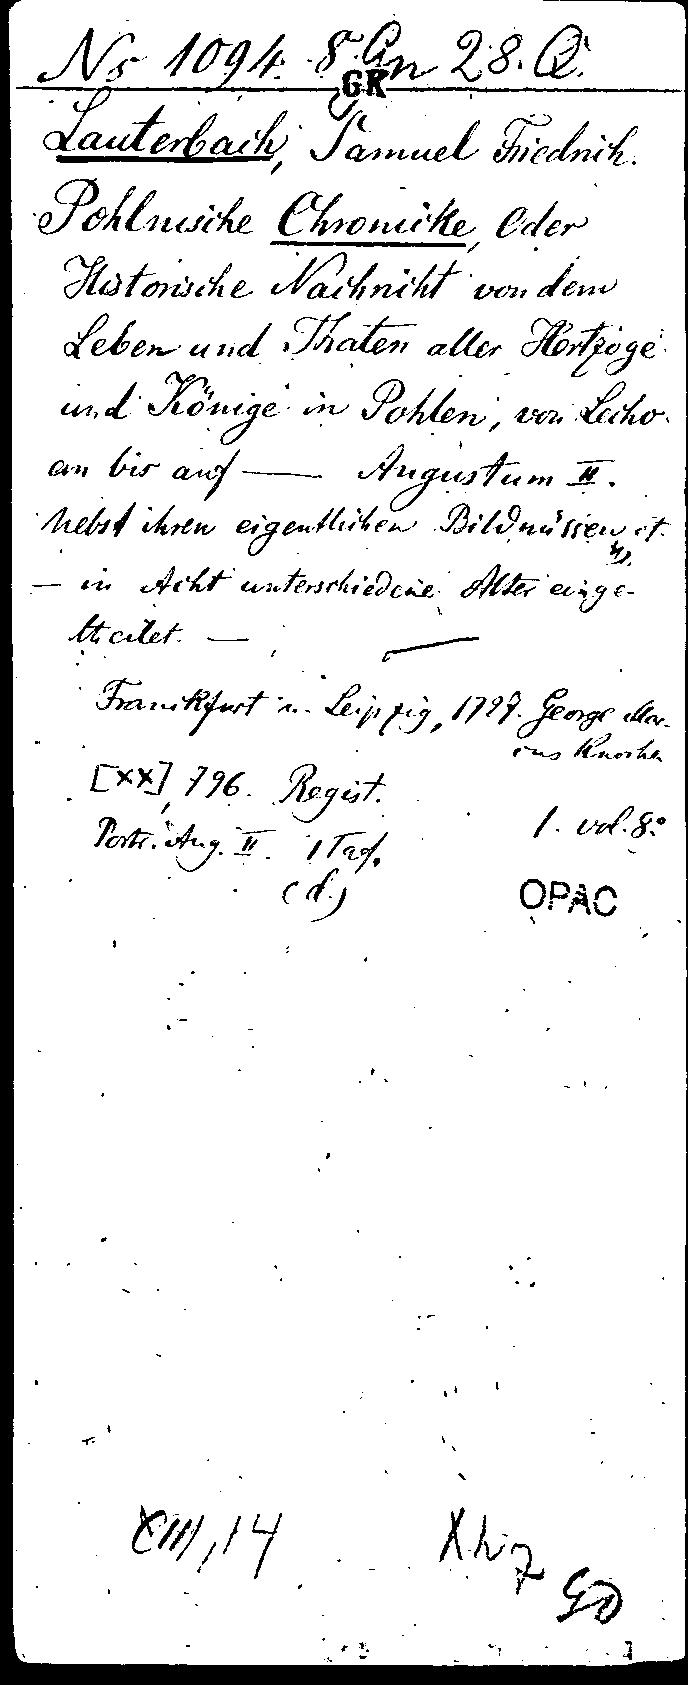 Ns 1094. 8. Gn 28. Q.
GR
Lauterbach, Samuel Friedrich.
Pohlnische Chronicke, Oder
Historische Nachricht von dem
Leben und Thaten aller Hertzoge
und Könige in Pohlen, von Lecho
an bis auf — Augustum II.
Nebst ihren eigentlichen Bildnüssen, et
— in Acht unterschiedene Alter einge-
theilet. —
Franckfurt u. Leipzig, 1727. George Mar-
cus Knoche
[XX], 796. Regist.
Portr. Aug. II. 1 Taf. 1. vol. 8.°
(d.) OPAC
XIII, 14